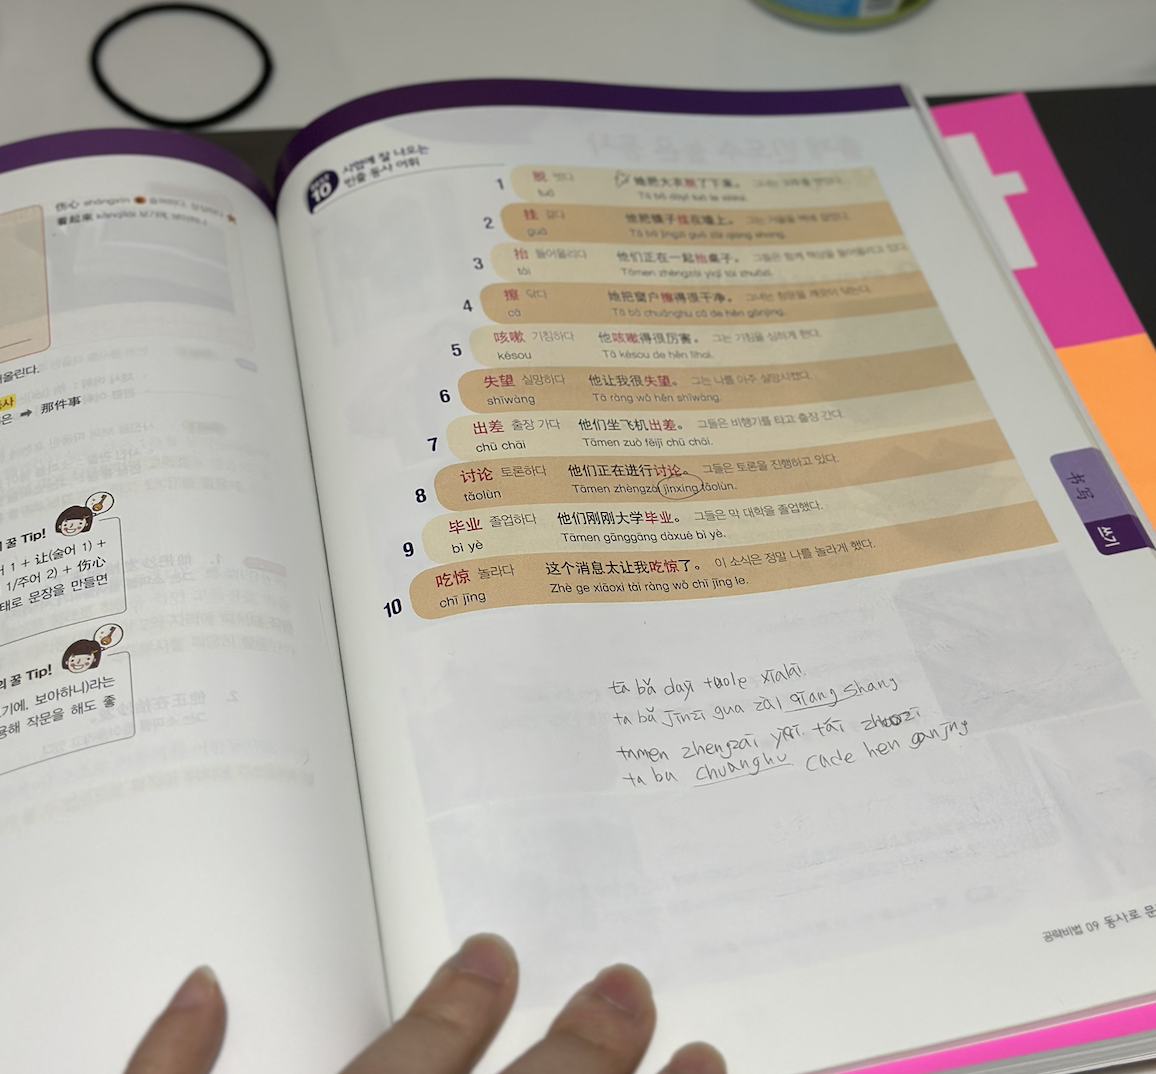 伤心 shāngxīn
看起来 kànqǐlái
올린다.
은 ➡ 那件事
꿀 Tip!
1 + 让(술어 1) +
1/주어 2) + 伤心
태로 문장을 만들면
의 꿀 Tip!
기에, 보아하니)라는
용해 작문을 해도 좋
10 시험에 잘 나오는
빈출 동사 어휘
1 脱 벗다 她把大衣脱了下来。
tuō
2 挂 걸다 他把镜子挂在墙上。 그는 거울을 벽에 걸었다.
guà Tā bǎ jìngzi guà zài qiáng shang.
3 抬 들어올리다 他们正在一起抬桌子。 그들은 함께 책상을 들어올리고 있다.
tái Tāmen zhèngzài yìqǐ tái zhuōzi.
4 擦 닦다 她把窗户擦得很干净。 그녀는 창문을 깨끗이 닦는다.
cā Tā bǎ chuānghu cā de hěn gānjìng.
5 咳嗽 기침하다 他咳嗽得很厉害。 그는 기침을 심하게 한다.
késou Tā késou de hěn lìhai.
6 失望 실망하다 他让我很失望。 그는 나를 아주 실망시켰다.
shīwàng Tā ràng wǒ hěn shīwàng.
7 出差 출장 가다 他们坐飞机出差。 그들은 비행기를 타고 출장 간다.
chū chāi Tāmen zuò fēijī chū chāi.
8 讨论 토론하다 他们正在进行讨论。 그들은 토론을 진행하고 있다.
tǎolùn Tāmen zhèngzài jìnxíng tǎolùn.
9 毕业 졸업하다 他们刚刚大学毕业。 그들은 막 대학을 졸업했다.
bì yè Tāmen gānggāng dàxué bì yè.
10 吃惊 놀라다 这个消息太让我吃惊了。 이 소식은 정말 나를 놀라게 했다.
chī jīng Zhè ge xiāoxi tài ràng wǒ chī jīng le.
tā bǎ dayi tuole xīalāi
ta bǎ Jīnzī gua zāi qīang shang
tamen zhengzāi yīqī tāi zhuozi
ta ba chuanghu cade hen ganjing
书写
쓰기
공략비법 09 동사로 문